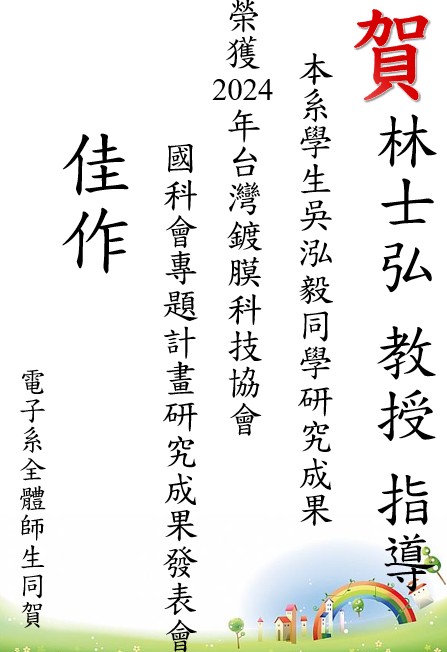 賀 林士弘 教授 指導
本系學生吳泓毅同學研究成果
榮獲2024年台灣鍍膜科技協會
國科會專題計畫研究成果發表會
佳作
電子系全體師生同賀